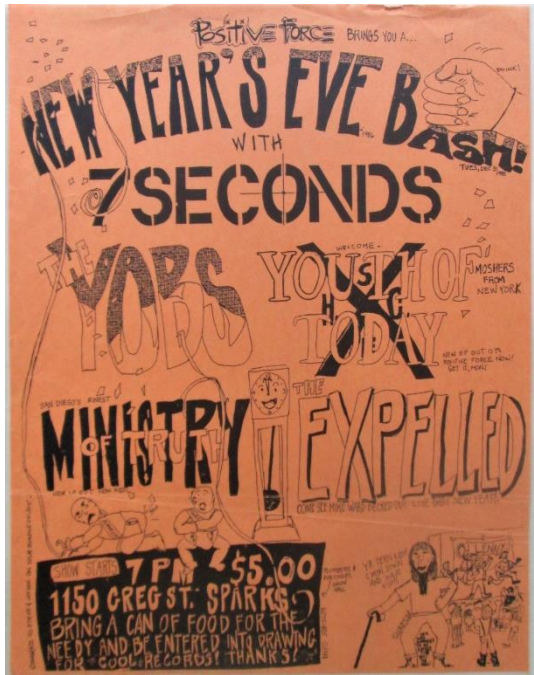 POSITIVE FORCE BRINGS YOU A...
NEW YEAR'S EVE BASH!
TUES, DEC 31,
WITH
7SECONDS
THE YOBS
WELCOME
YOUTH OF TODAY
MOSHERS FROM NEW YORK
NEW EP OUT ON POSITIVE FORCE NOW! GET IT,
SAN DIEGO'S FINEST
MINISTRY OF TRUTH
THE EXPELLED
COME SEE MIKE WARD DECKED OUT LIKE BABY NEW YEAR!
SHOW STARTS 7PM $5.00
1150 GREG ST. SPARKS
BRING A CAN OF FOOD FOR THE
NEEDY AND BE ENTERED INTO DRAWING
FOR COOL RECORDS! THANKS!